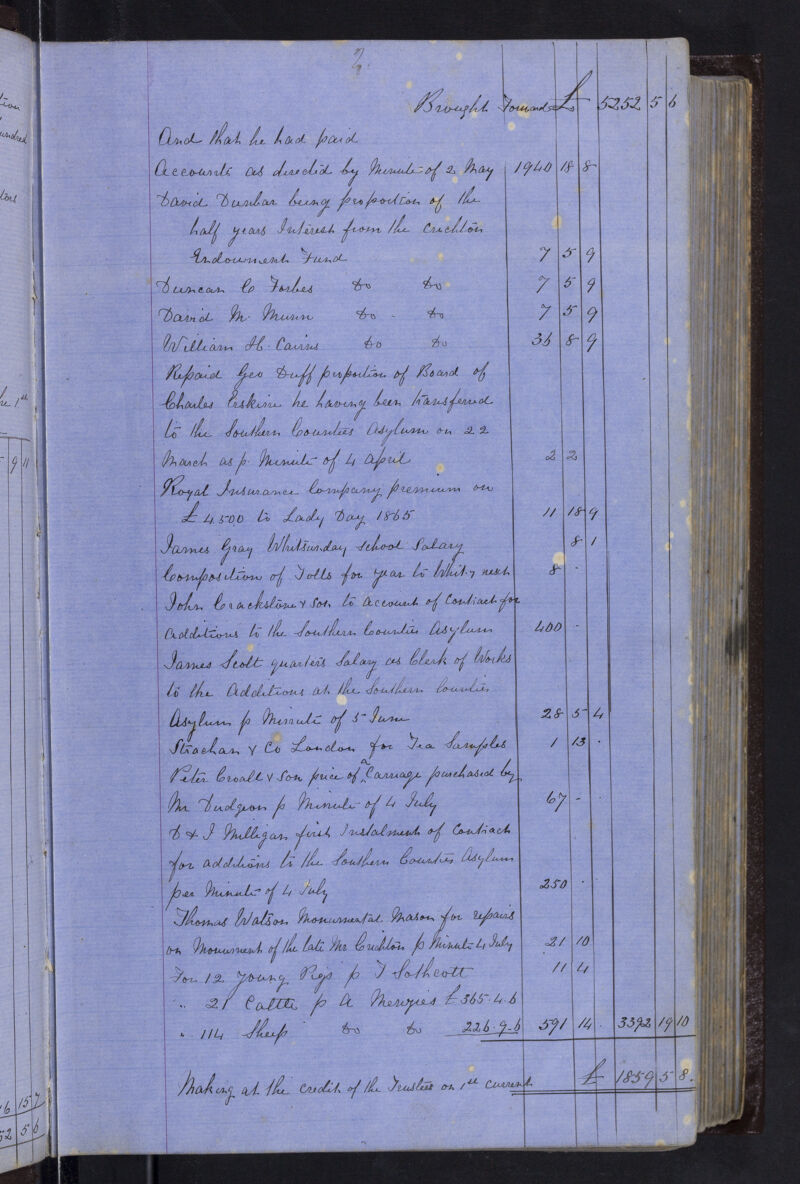 2.
Brought Forward £ 5252 5 6
And that he had paid
Accounts as directed by Minute of 2 May 1940 18 8
David Dunbar being proportion of the
half years Interest from the Crichton
Endowment Fund 7 5 9
Duncan C Forbes Do Do 7 5 9
David M. Munn Do - Do 7 5 9
William H. Cairns Do Do 36 8 9
Repaid Geo Duff proportion of Board of
Charles Erskine he having been transferred
to the Southern Counties Asylum on 22
March as p. Minute of 4 April 2 2
Royal Insurance Company premium on
£4500 to Lady Day 1865 11 18 9
James Gray Whitsunday school Salary 8 1
Composition of Tolls for year to Whit-y next 8 -
John Crackstone & Son to account of Contract for
additions to the Southern Counties Asylum 400 -
James Scott quarters Salary as Clerk of Works
to the Additions at the Southern Counties
Asylum p Minute of 5 June 28 5 4
Strachan & Co London for Tea Samples 1 13 .
Peter Croall & Son price of a Carriage purchased by
Mr Dudgeon p Minute of 4 July 67 -
D & J Milligan first Instalment of Contract
for additions to the Southern Counties Asylum
per Minute of 4 July 250 .
Thomas Watson Monumental Mason for repairs
on Monument of the late Mr Crichton p Minute 4 July 21 10
For 12 young Pigs p J Sothcott 11 4
" 21 Cattle p A Menzies £365.4.6
" 114 Sheep Do Do 226.9.6 591 14 . 3392 19 10
Making at the credit of the Trustees on 1st current £ 1859 5 8.
tion
undred
tors
he 1st
9 11
6 15 7
52 5 6